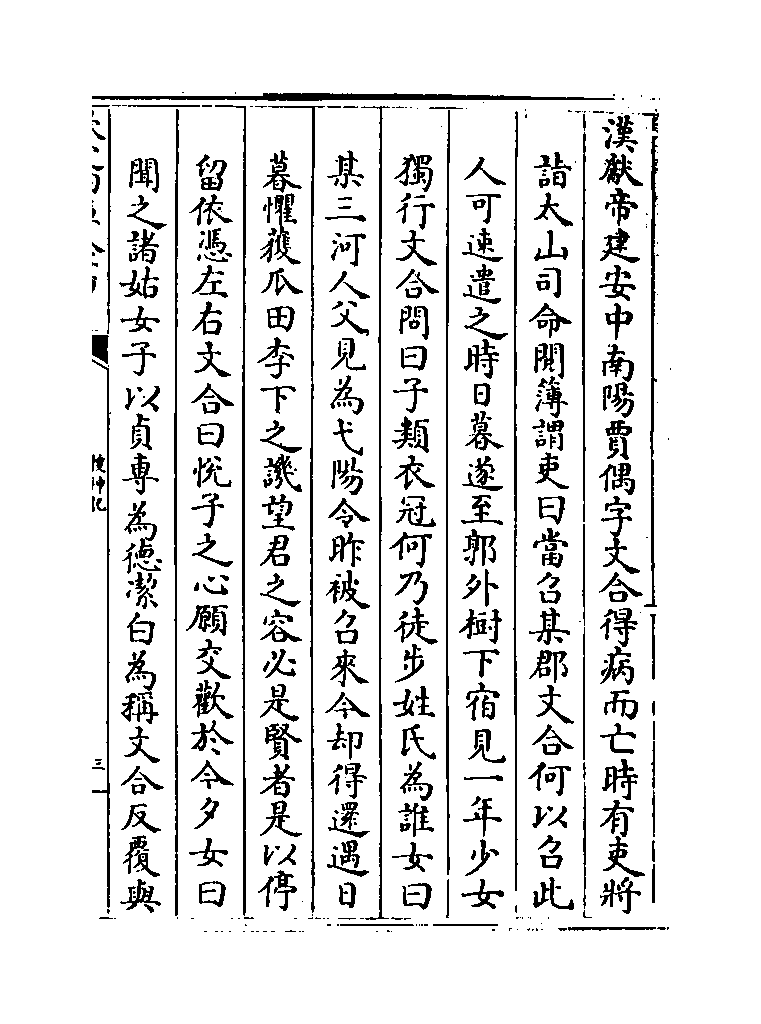 漢獻帝建安中南陽賈偶字文合得病而亡時有吏將
詣太山司命閱簿謂吏曰當召某郡文合何以召此
人可速遣之時日暮遂至郭外樹下宿見一年少女
獨行文合問曰子類衣冠何乃徒步姓氏為誰女曰
某三河人父見為弋陽令昨被召來今却得還遇日
暮懼獲瓜田李下之譏望君之容必是賢者是以停
留依憑左右文合曰悅子之心願交歡於今夕女曰
聞之諸姑女子以貞專為德潔白為稱文合反覆與
搜神記
三